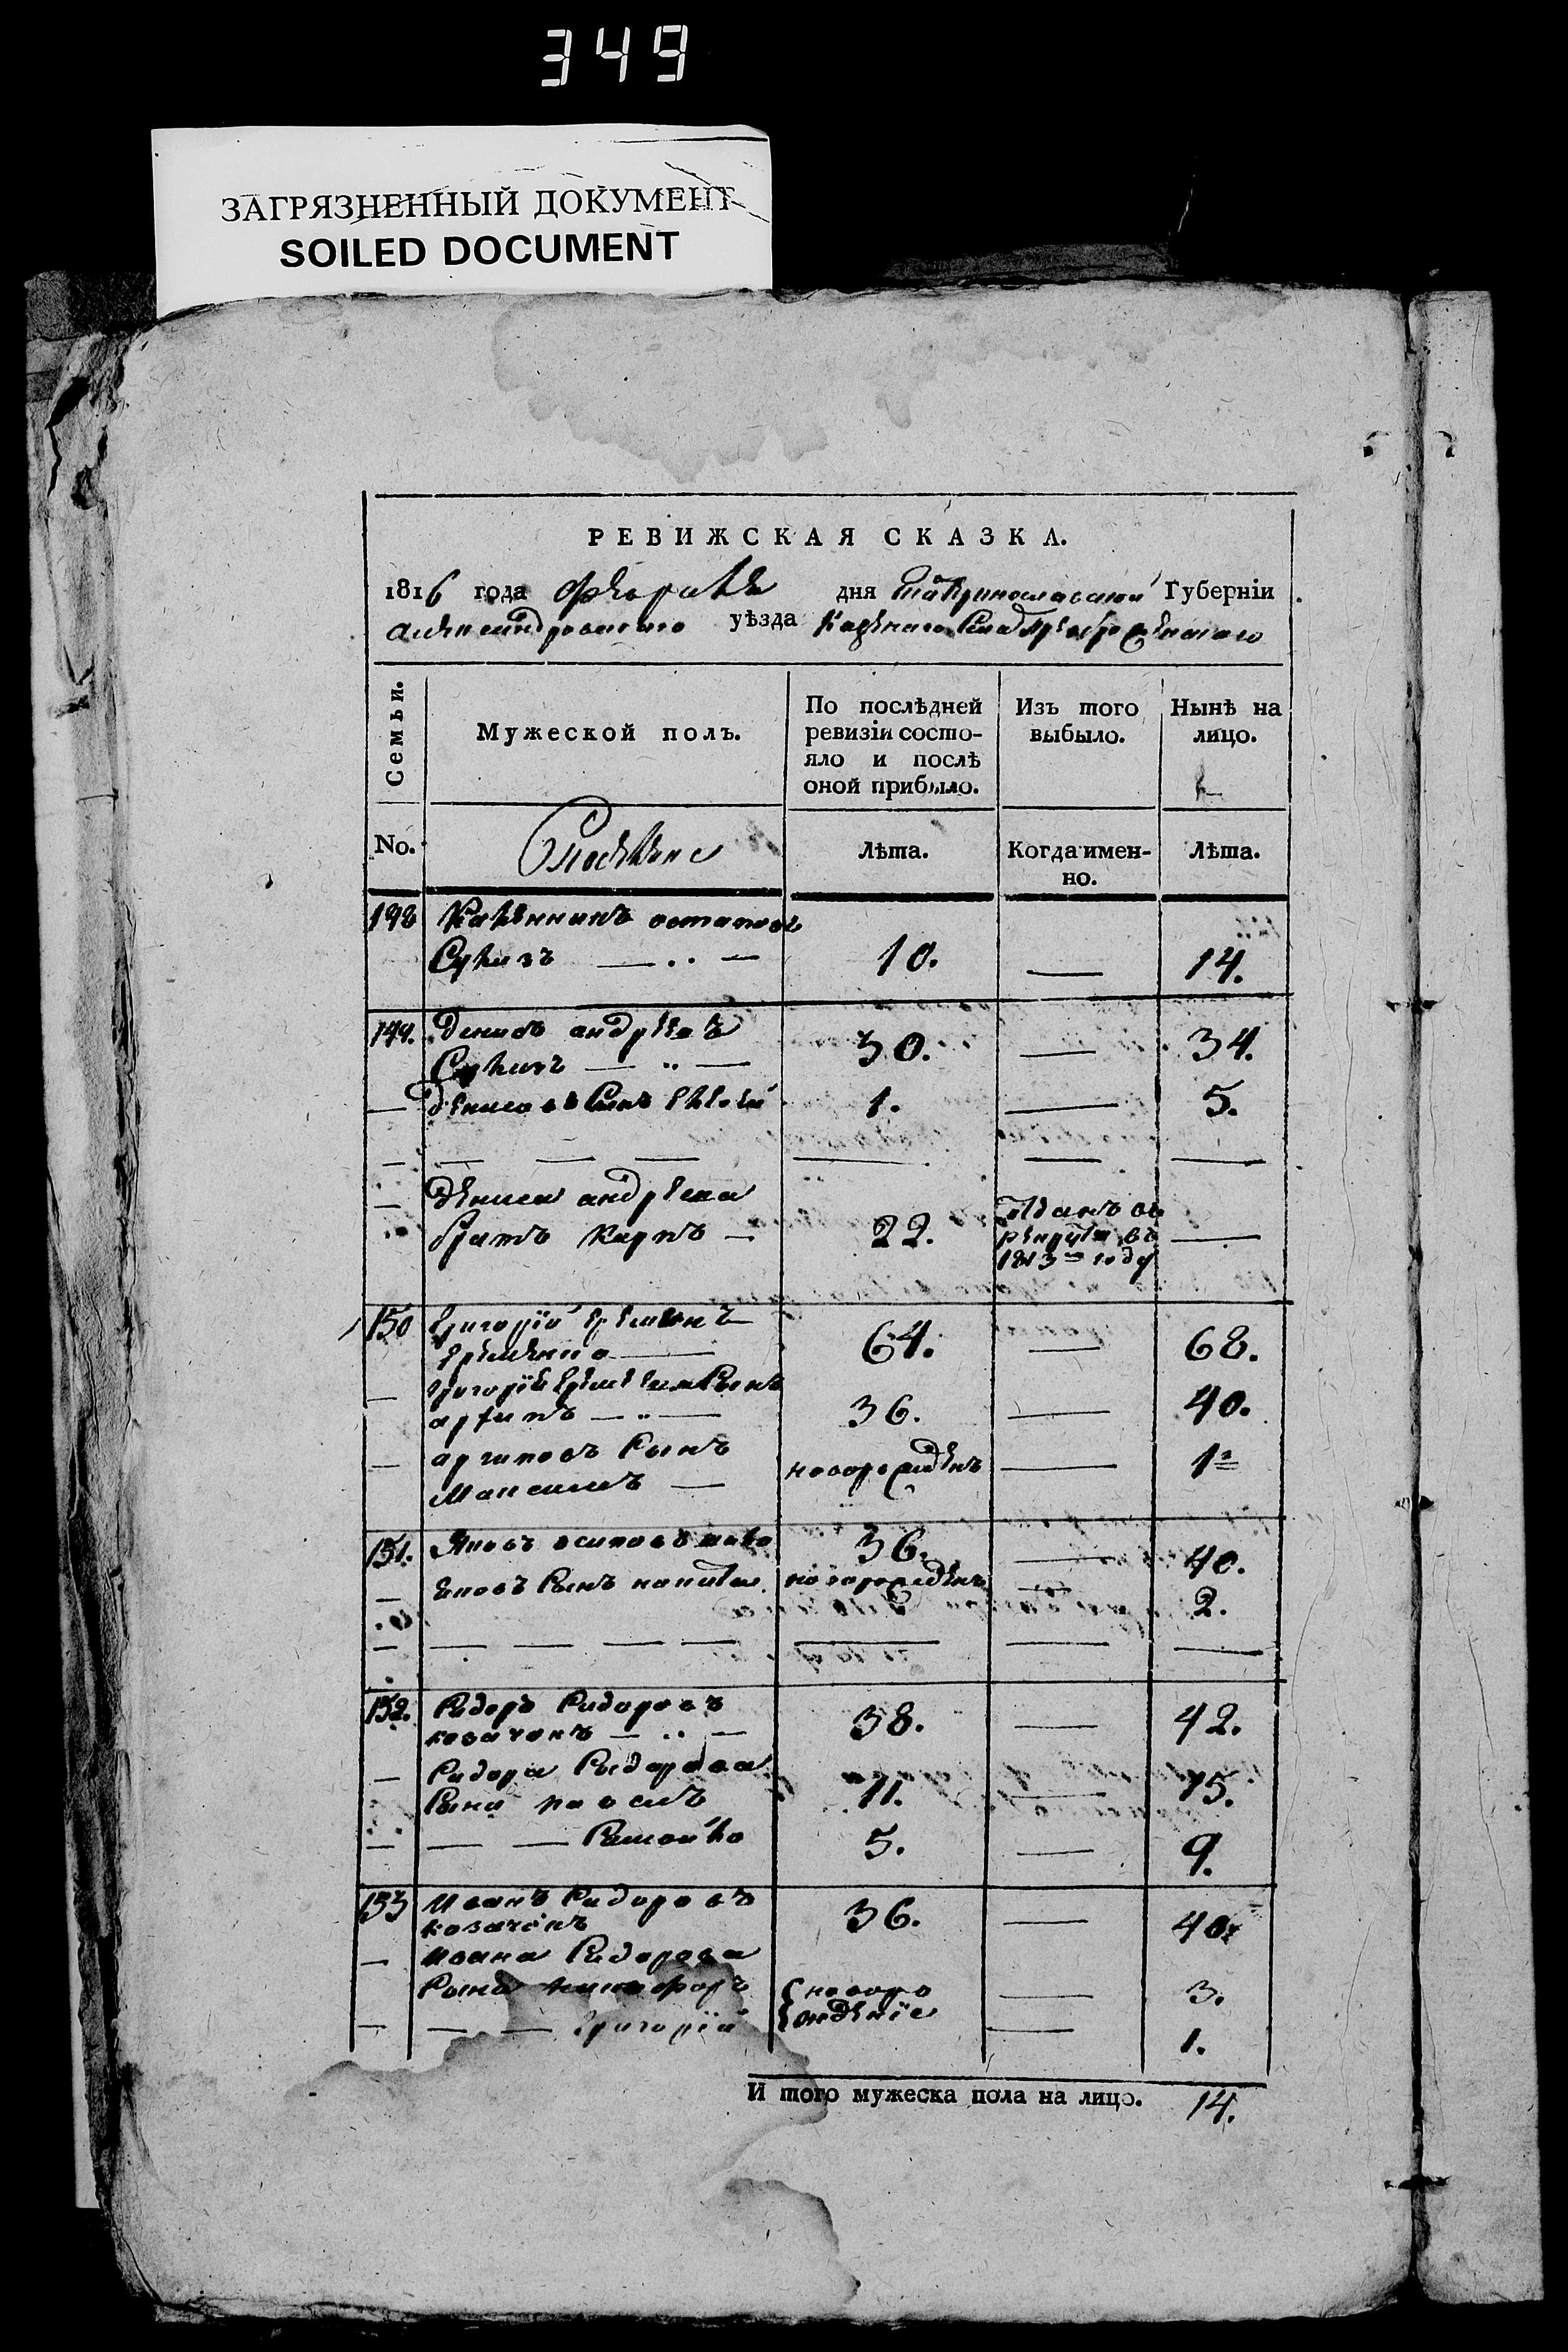 349
ЗАГРЯЗНЕННЫЙ ДОКУМЕНТ
SOILED DOCUMENT
РЕВИЖСКАЯ СКАЗКА.
1816 года февраля дня Екатеринославской Губерніи
александровского уѣзда Казенного Села Преображенского
Семьи.
Мужеской полъ.
По послѣдней ревизіи состояло и послѣ оной прибыло.
Изъ того выбыло.
Нынѣ на лицо.
No.
Лѣта.
Когда имен-
но.
Лѣта.
148 остапов
10. — 14.
149. Денисъ андреевъ
30. — 34.
— денисовъ Сынъ 1. — 5.
— дениса андреева
братъ Карпъ — 22. отданъ въ рекруты въ 1813м году —
150 Григорій
Еременко — 64. — 68.
— григорія Сынъ
архипъ — 36. — 40.
— архиповъ Сынъ
Максимъ — новорожденъ — 1
151. Яковъ осиповъ 36. — 40.
— Яковъ Сынъ новорожденъ — 2.
152. Сидоръ Сидоровъ
козачокъ — 38. — 42.
— Сидора Сидорова
Сынъ 11. — 15.
— — — Самойло 5. — 9.
153 Иванъ Сидоровъ
козачокъ 36. — 40.
— Ивана Сидорова
Сынъ никифоръ новоро — 3.
— — — григорій жденіе — 1.
И того мужеска пола на лицо. 14.